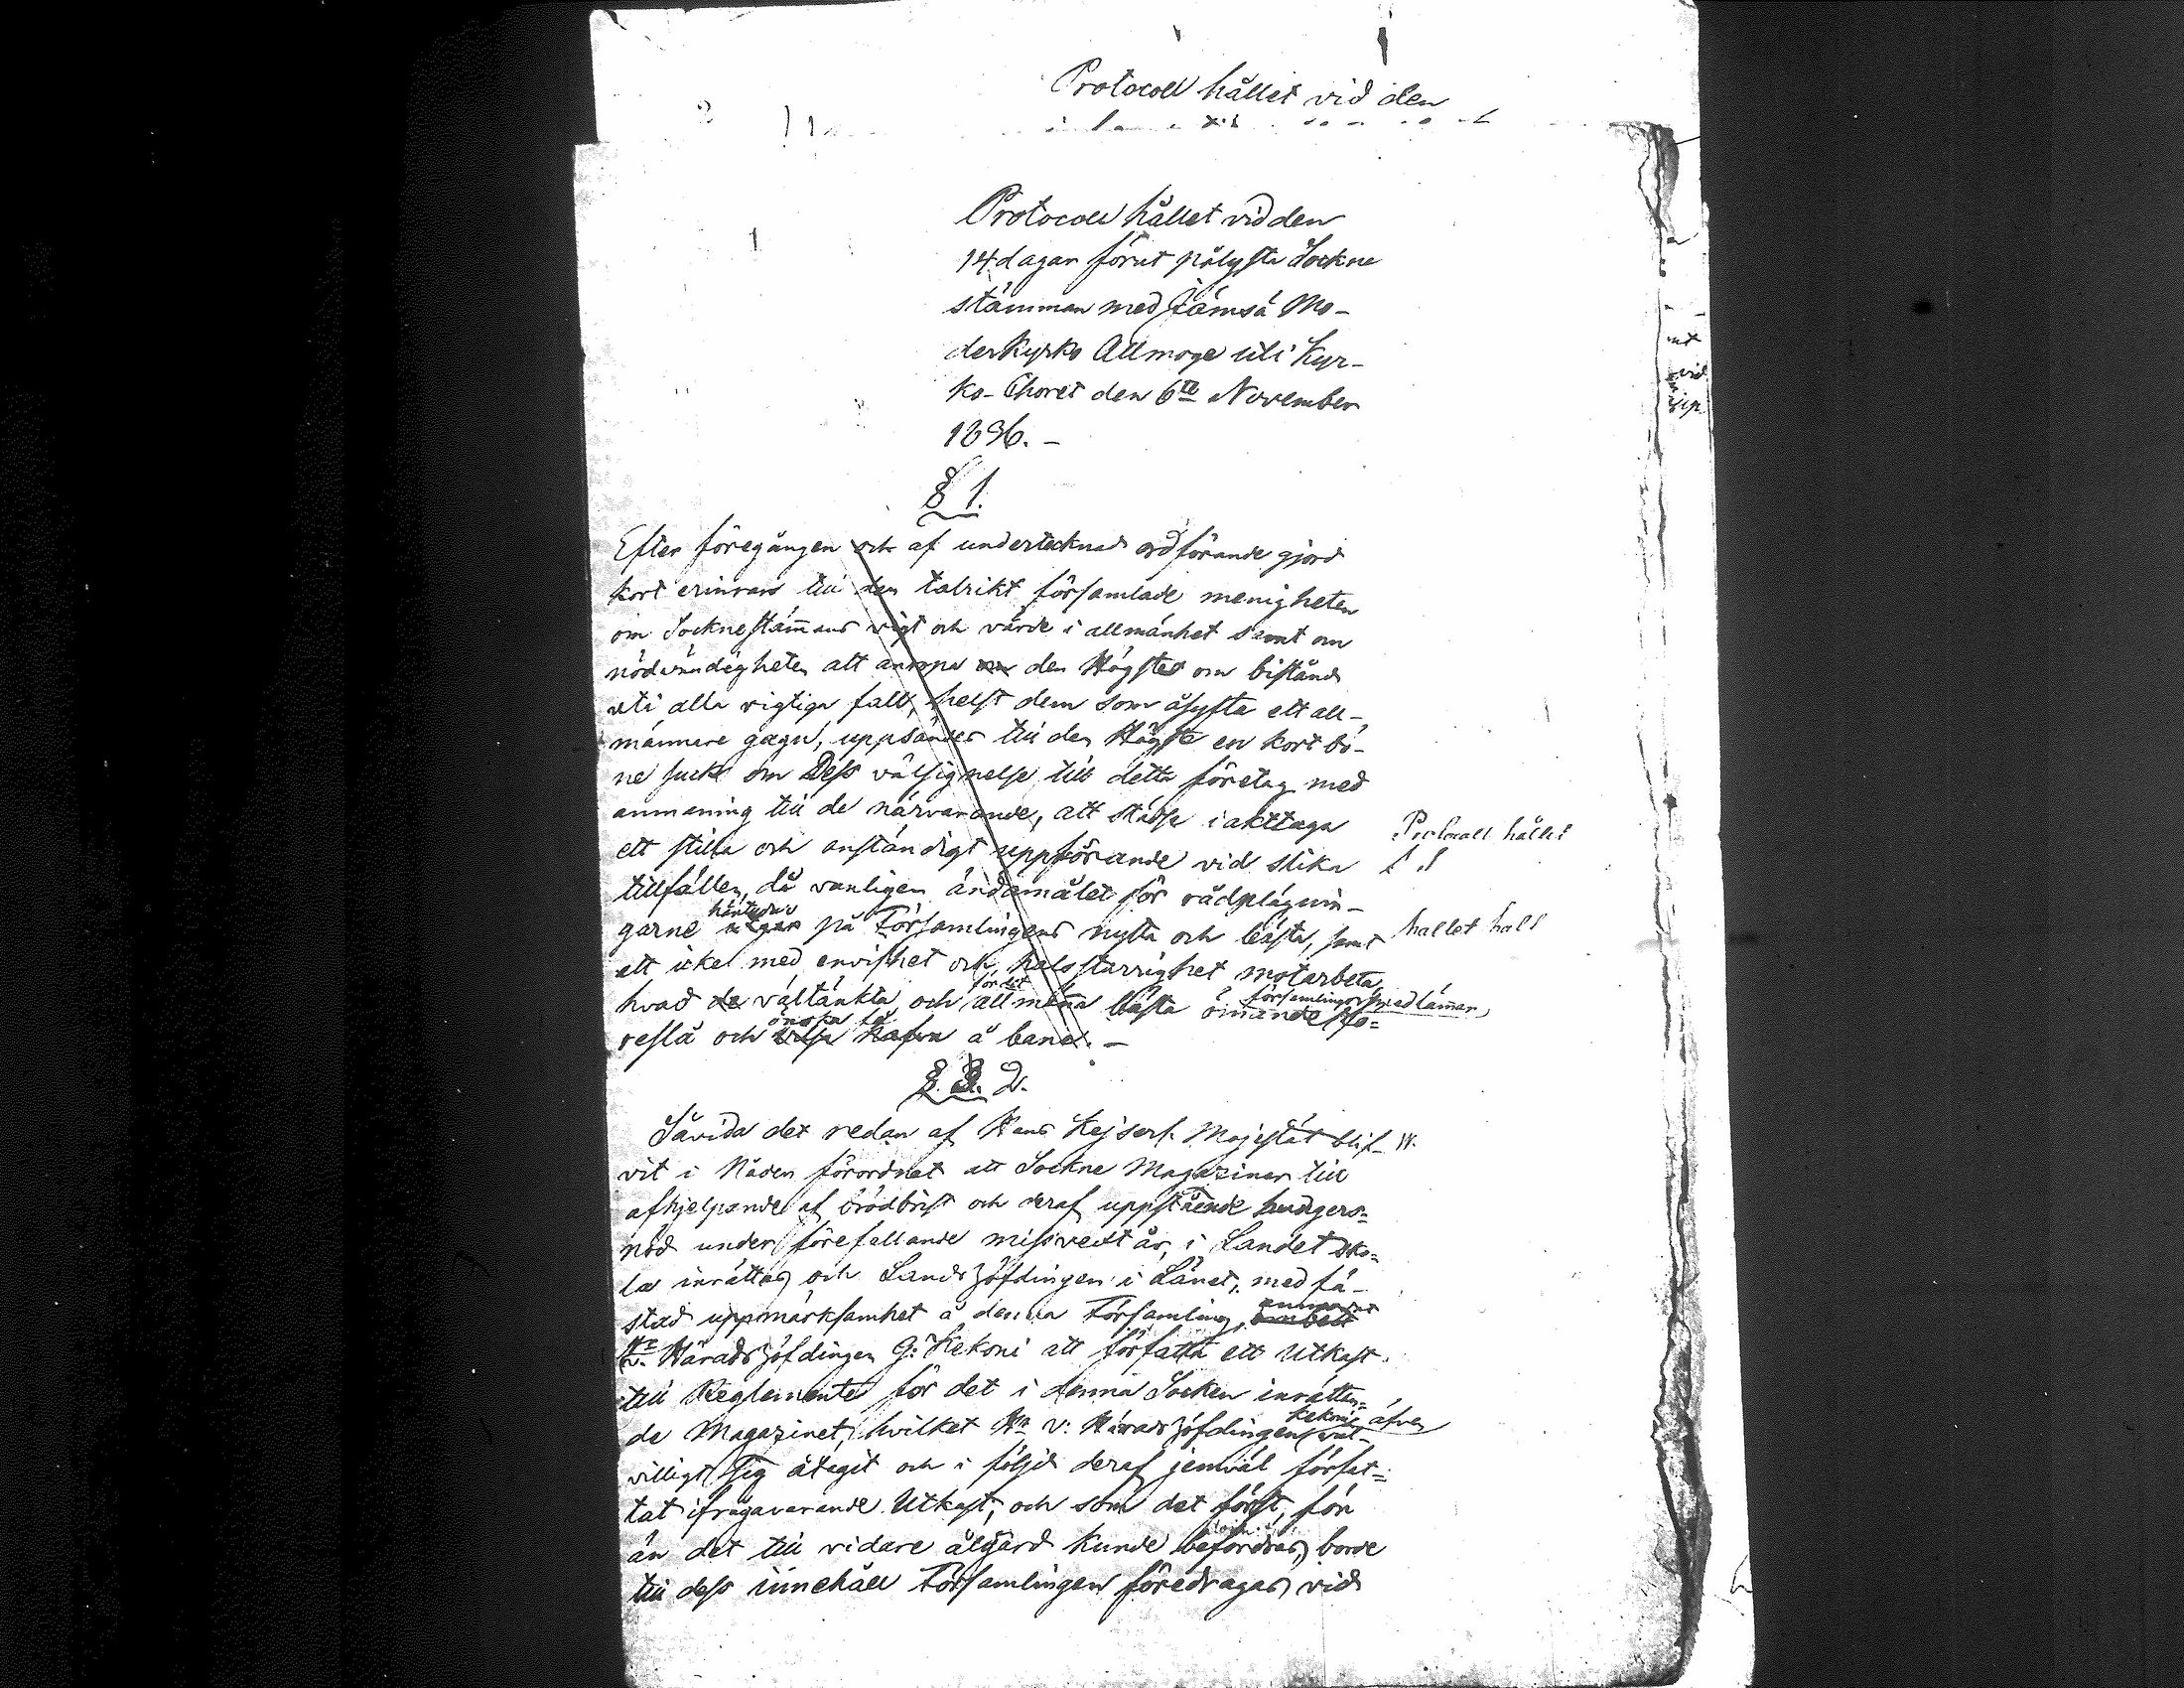 Protocoll hållet vid den
Protocoll hållet vid den
14 dagar förut pålysta Sockne
stämman med Jämsä Mo-
derkyrko Allmoge uti Kyr-
ko-Choret den 6te November
1836. -
§ 1.
Efter föregången och af undertecknad ordförande gjord
kort erinran till den talrikt församlade menigheten
om Socknestämans vigt och värde i allmänhet samt om
nödvändigheten att anropa den Högste om bistånd
uti alla vigtiga fall, helst dem som åsyfta ett all-
männare gagn, uppsändes till den Högste en kort bö-
ne suck om Dess välsignelse till detta företag med
anmaning till de närvarande, att städse iakttaga
Protocoll hållet
ett stilla och anständigt uppförande vid slika
tillfällen, då vanligen ändamålet för rådplägnin-
garne på Församlingens nytta och bästa, samt
hallet hall
ett ickel med envishet och halsstarrighet motarbeta,
för det församlingens medlämar
hvad de vältänkta och allmena bästa ömande fö-
önska få
reslå och å bana. -
§. 2.
Såvida det redan af Hans Kejserl. Majestät blif-
vit i Nåder förordnat att Sockne Magaziner till
afhjelpande af brödbrist och deraf uppstående hungers=
nöd under förefallande missvext år, i Landet sko=
la inrättas, och Landshöfdingen i Länet, med fä-
stad uppmärksamhet å denna Församling,
Hr v. Häradshöfdingen G: Kekoni att författa ett Utkast
till Reglemente för det i denna Socken inrätten=
Kekoni äfven
de Magazinet, hvilket Hr v: Häradshöfdingen väl-
villigt sig åtagit och i följd deraf jemväl förfat=
tat ifrågavarande Utkast, och som det först, förr
än det till vidare åtgärd kunde befordras, borde
till dess innehåll Församlingen föredragas, vid